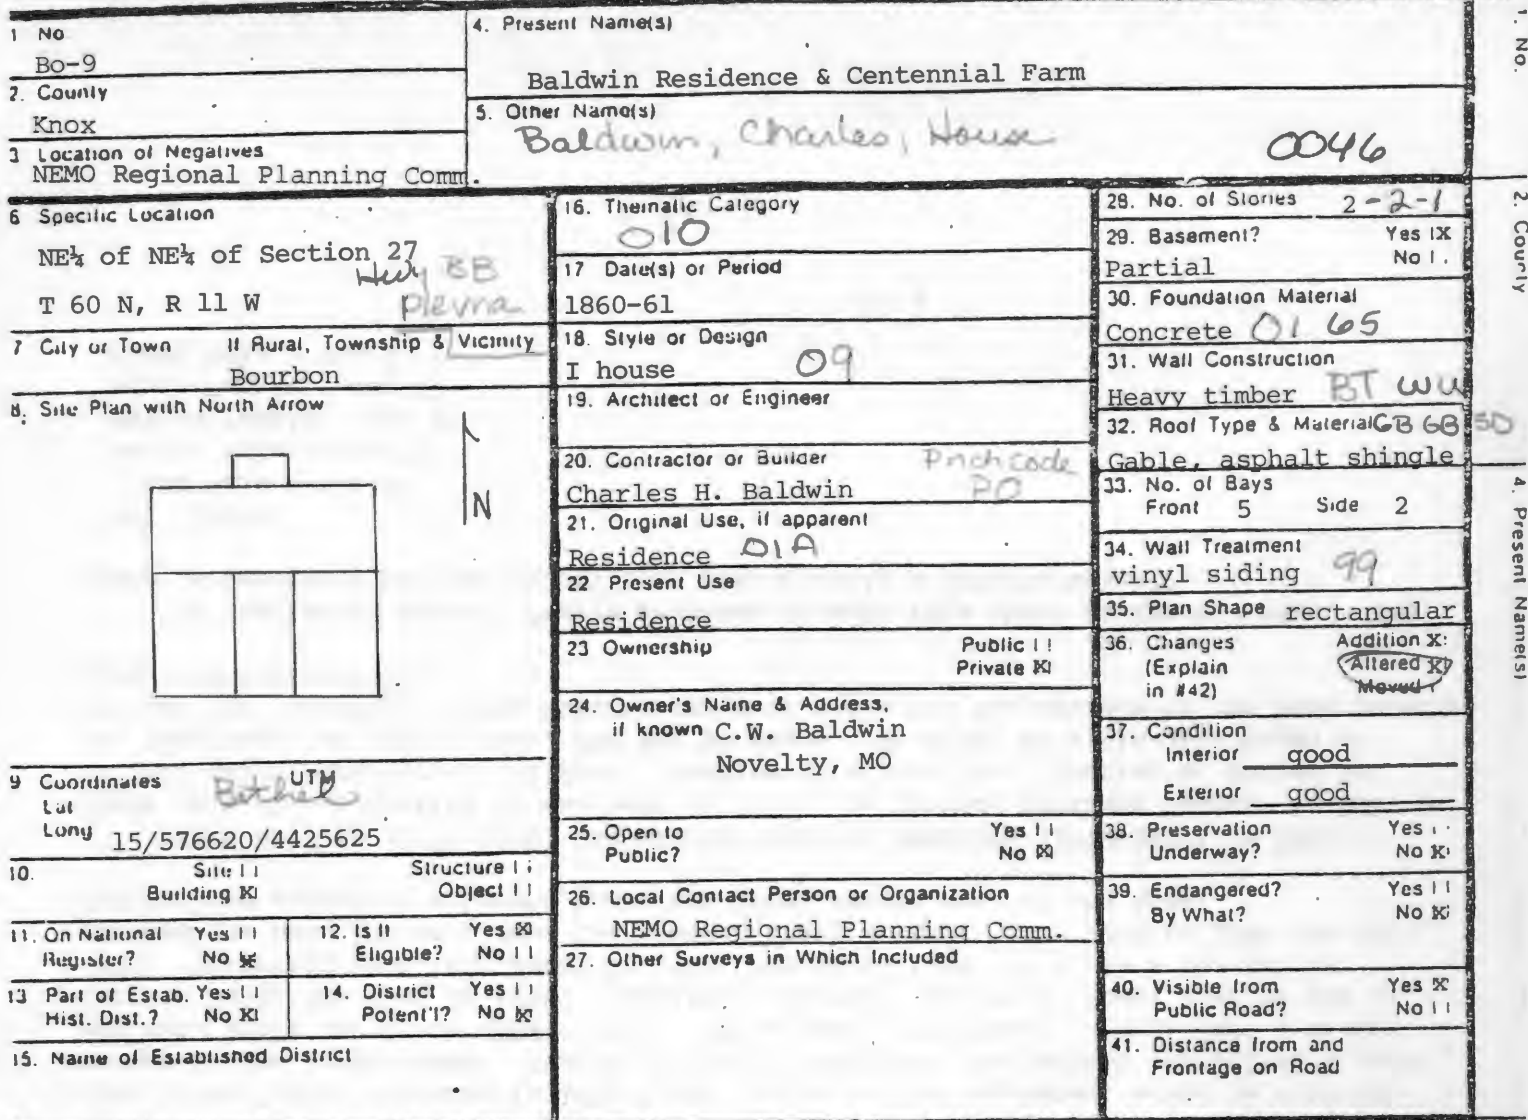 1 No
Bo-9
2. County
Knox
3 Location of Negatives
NEMO Regional Planning Comm.
4. Present Name(s)
Baldwin Residence & Centennial Farm
5. Other Name(s)
Baldwin, Charles, House
0046
6 Specific Location
NE¼ of NE¼ of Section 27
Hwy BB
T 60 N, R 11 W
Plevna
7 City or Town If Rural, Township & Vicinity
Bourbon
8. Site Plan with North Arrow
N
9 Coordinates UTM
Lat
Bethel
Long 15/576620/4425625
10. Site Structure
Building X Object
11. On National Register? Yes No X
12. Is It Eligible? Yes X No
13 Part of Estab. Hist. Dist.? Yes No X
14. District Potent'l? Yes No X
15. Name of Established District
16. Thematic Category
010
17 Date(s) or Period
1860-61
18. Style or Design
I house 09
19. Architect or Engineer
20. Contractor or Builder
Porch code
Charles H. Baldwin PO
21. Original Use, if apparent
Residence 01A
22 Present Use
Residence
23 Ownership Public
Private X
24. Owner's Name & Address,
if known C.W. Baldwin
Novelty, MO
25. Open to Yes
Public? No X
26. Local Contact Person or Organization
NEMO Regional Planning Comm.
27. Other Surveys in Which Included
28. No. of Stories 2-2-1
29. Basement? Yes X
Partial No
30. Foundation Material
Concrete 01 65
31. Wall Construction
Heavy timber BT WU
32. Roof Type & Material GB GB SD
Gable, asphalt shingle
33. No. of Bays
Front 5 Side 2
34. Wall Treatment
vinyl siding 99
35. Plan Shape rectangular
36. Changes Addition X
(Explain Altered X
in #42) Moved
37. Condition
Interior good
Exterior good
38. Preservation Yes
Underway? No X
39. Endangered? Yes
By What? No X
40. Visible from Yes X
Public Road? No
41. Distance from and
Frontage on Road
1. No.
2. County
4. Present Name(s)